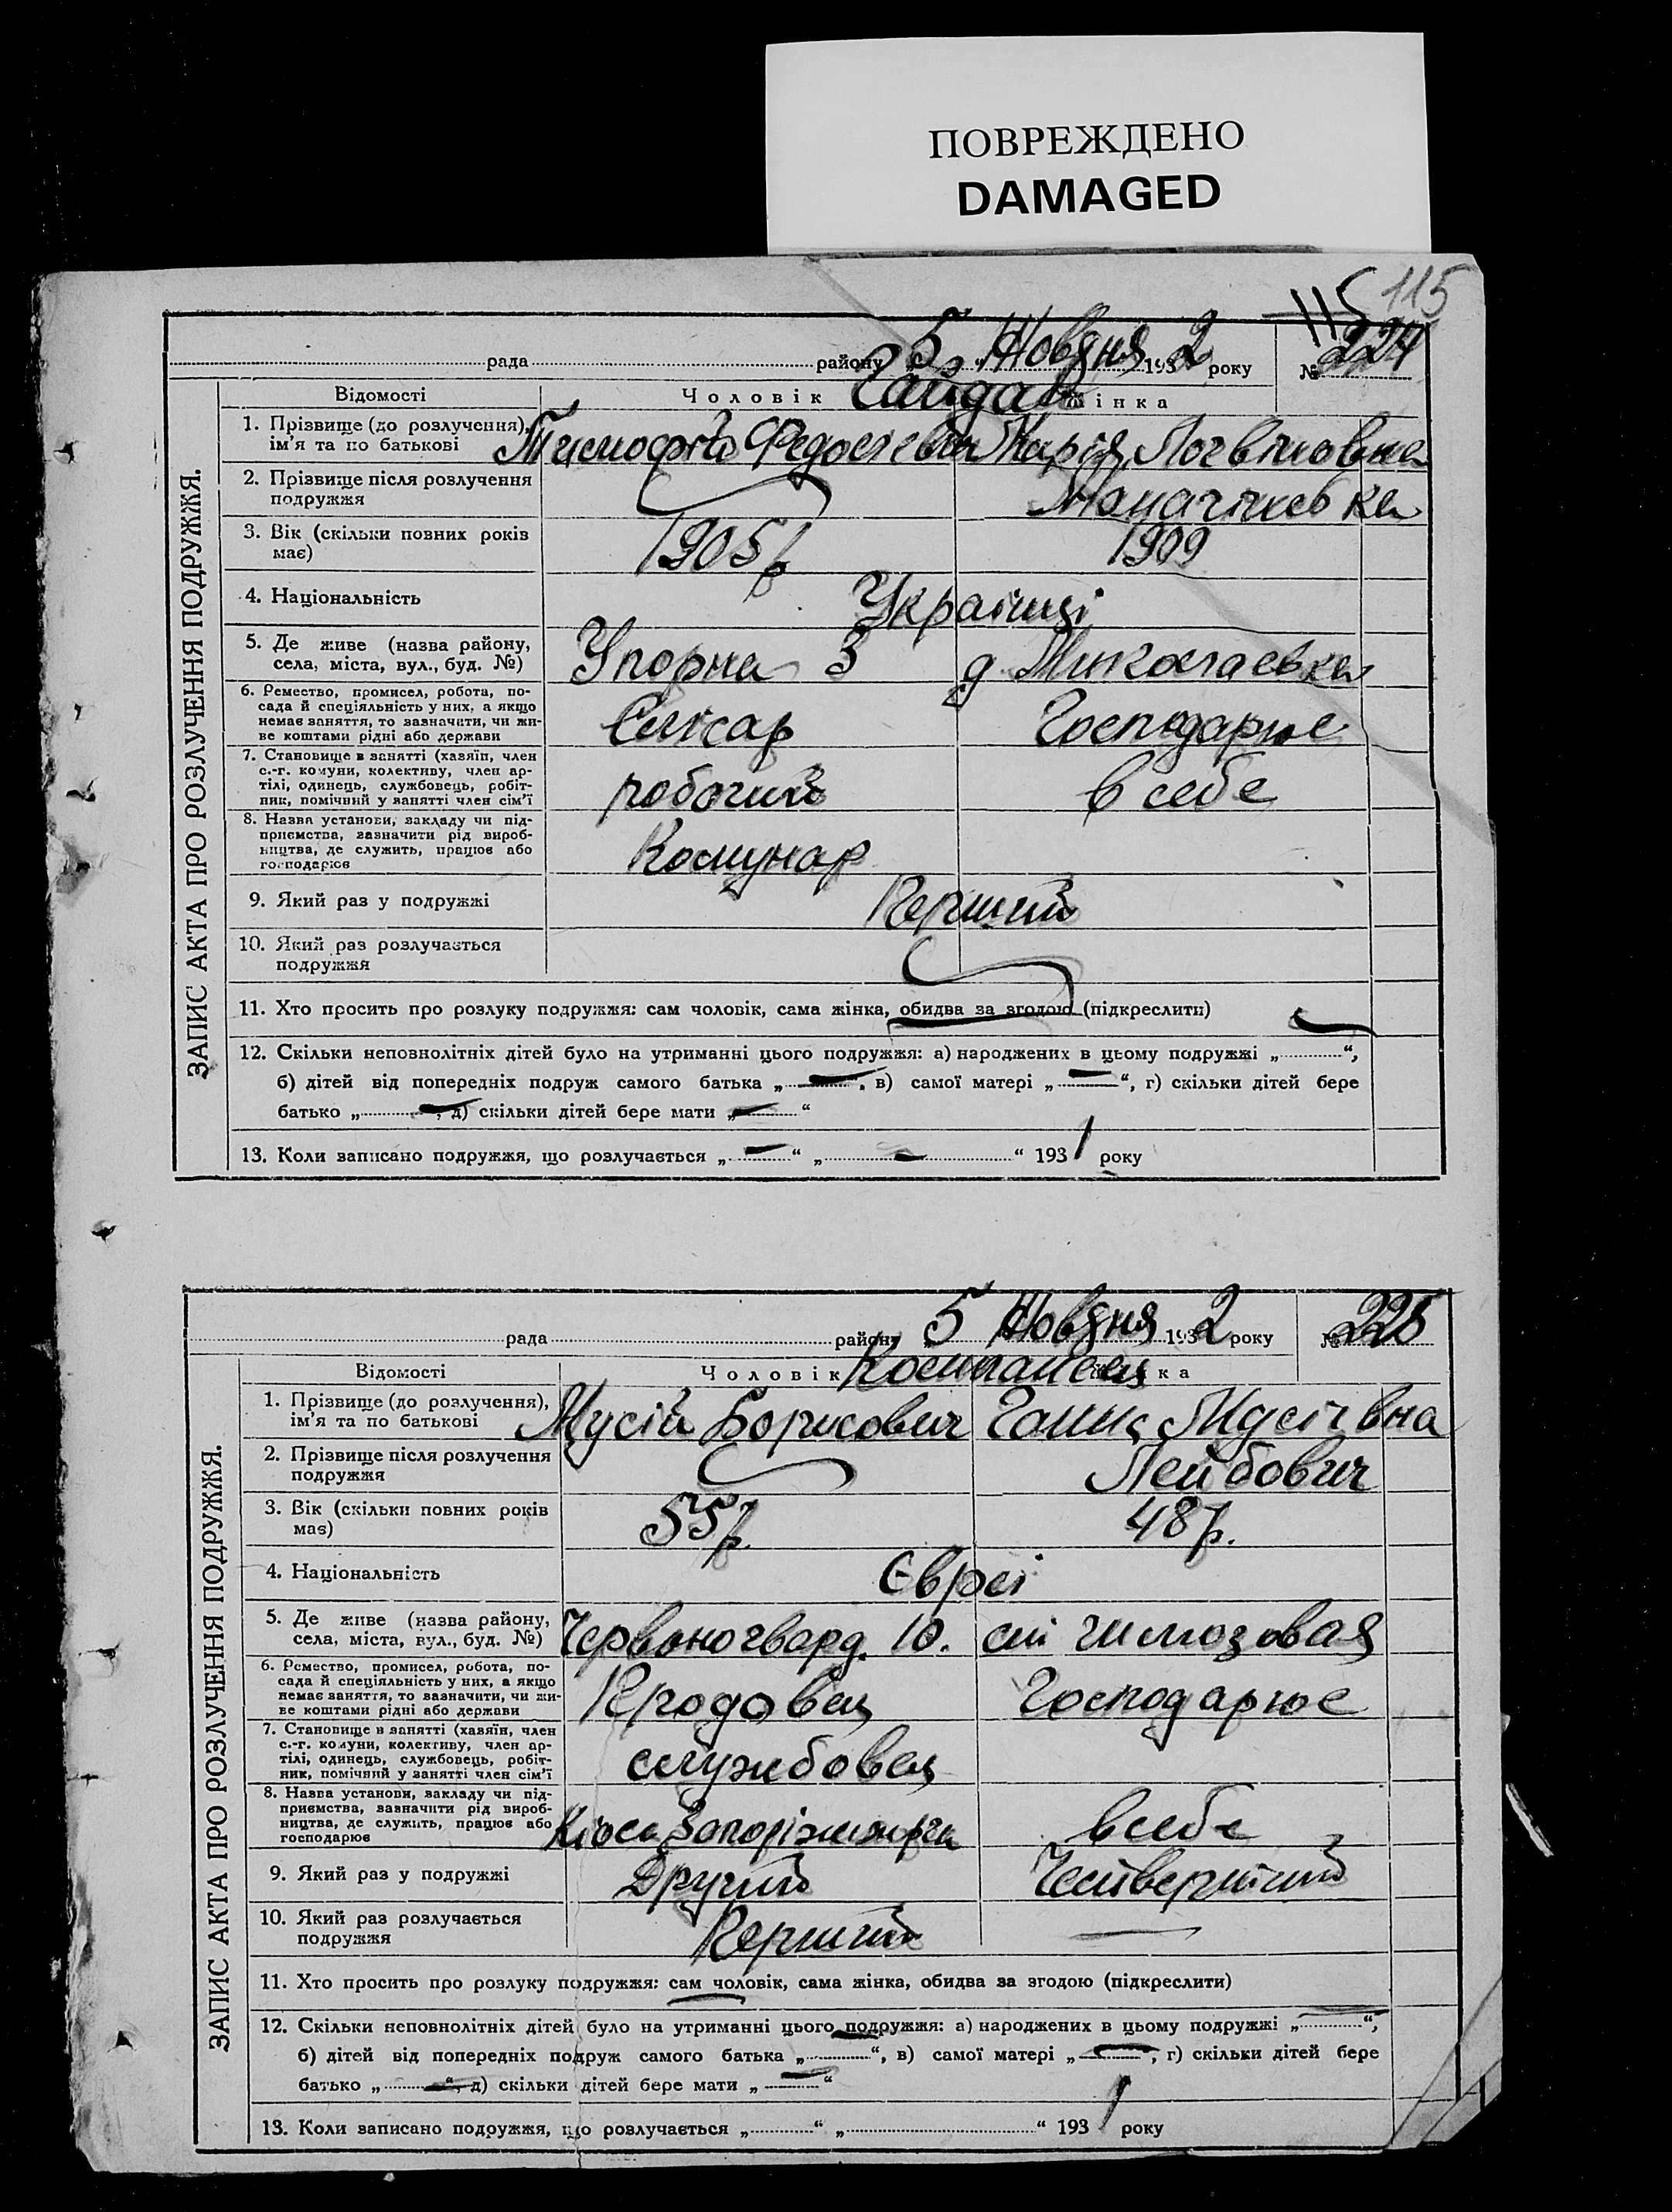 ПОВРЕЖДЕНО
DAMAGED
115 115
рада району 5 Жовдня 1932 року № 224
Відомості Чоловік Жінка
Гайдар
1. Прізвище (до розлучення), ім'я та по батькові Тимофій Федосієвич Марія Логвіновна
2. Прізвище після розлучення подружжя Маначінска
3. Вік (скільки повних років має) 1905 р 1909
4. Національність Українці
5. Де живе (назва району, села, міста, вул., буд. №) Упорна 3 д. Миколаевка
6. Ремество, промисел, робота, по-
сада й спеціяльність у них, а якщо
немає заняття, то зазначити, чи жи-
ве коштами рідні або держави Слюсар Господарює
7. Становище в занятті (хазяїн, член
с.-г. комуни, колективу, член ар-
тілі, одинець, службовець, робіт-
ник, помічний у занятті член сім'ї робочий в себе
8. Назва установи, закладу чи під-
приємства, зазначити рід вироб-
ництва, де служить, працює або
господарює Комунар
9. Який раз у подружжі Перший
10. Який раз розлучається подружжя
11. Хто просить про розлуку подружжя: сам чоловік, сама жінка, обидва за згодою (підкреслити)
12. Скільки неповнолітніх дітей було на утриманні цього подружжя: а) народжених в цьому подружжі „ — “,
б) дітей від попередніх подруж самого батька „ — “, в) самої матері „ — “, г) скільки дітей бере
батько „ — “, д) скільки дітей бере мати „ — “
13. Коли записано подружжя, що розлучається „ — “ „ — “ 1931 року
ЗАПИС АКТА ПРО РОЗЛУЧЕННЯ ПОДРУЖЖЯ.
рада району 5 Жовдня 1932 року № 225
Відомості Чоловік Жінка
1. Прізвище (до розлучення), ім'я та по батькові Мусій Борисович Ганна Мусіївна
2. Прізвище після розлучення подружжя Лейбович
3. Вік (скільки повних років має) 55 р. 48 р.
4. Національність Євреї
5. Де живе (назва району, села, міста, вул., буд. №) Червоногвард. 10.
6. Ремество, промисел, робота, по-
сада й спеціяльність у них, а якщо
немає заняття, то зазначити, чи жи-
ве коштами рідні або держави Продовец Господарює
7. Становище в занятті (хазяїн, член
с.-г. комуни, колективу, член ар-
тілі, одинець, службовець, робіт-
ник, помічний у занятті член сім'ї службовец
8. Назва установи, закладу чи під-
приємства, зазначити рід вироб-
ництва, де служить, працює або
господарює в себе
9. Який раз у подружжі Другий Четвертий
10. Який раз розлучається подружжя Перший —
11. Хто просить про розлуку подружжя: сам чоловік, сама жінка, обидва за згодою (підкреслити)
12. Скільки неповнолітніх дітей було на утриманні цього подружжя: а) народжених в цьому подружжі „ — “,
б) дітей від попередніх подруж самого батька „ — “, в) самої матері „ — “, г) скільки дітей бере
батько „ — “, д) скільки дітей бере мати „ — “
13. Коли записано подружжя, що розлучається „ “ „ “ 1931 року
ЗАПИС АКТА ПРО РОЗЛУЧЕННЯ ПОДРУЖЖЯ.